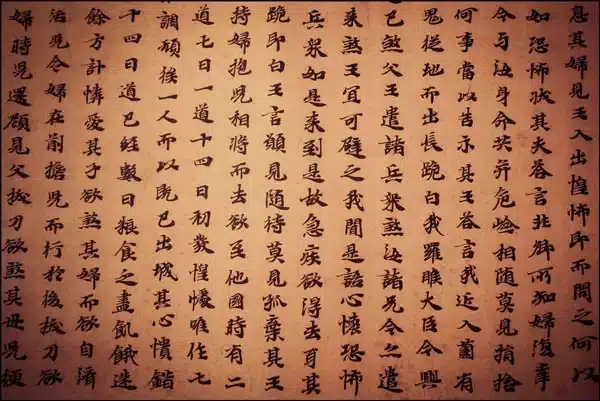 息其婦見王入出惶怖即而問之何以
如恐怖狀其夫答言非卿所知婦復牽
令与汝身命共并危嶮相随莫見捐捨
何事當以告示其王答言我近入薗有
鬼從地而出長跪白我羅睺大臣今興
已煞父王遣諸兵衆煞汝諸兄今亦遣
来煞王宜可避之我聞是語心懐恐怖
兵衆如是来到是故急疾欲得去耳其
跪即白王言願見随侍莫見孤棄其王
持婦抱兒相将而去欲至他國時有二
道七日一道十四日初發惶懅唯作七
調頓俟一人而以既已出城其心憒錯
十四日道已経數日粮食之盡飢餓迷
餘方計憐愛其子欲煞其婦而欲自濟
活兒令婦在前擔兒而行於後拔刀欲
婦時兒還顧見父拔刀欲煞其母兒便